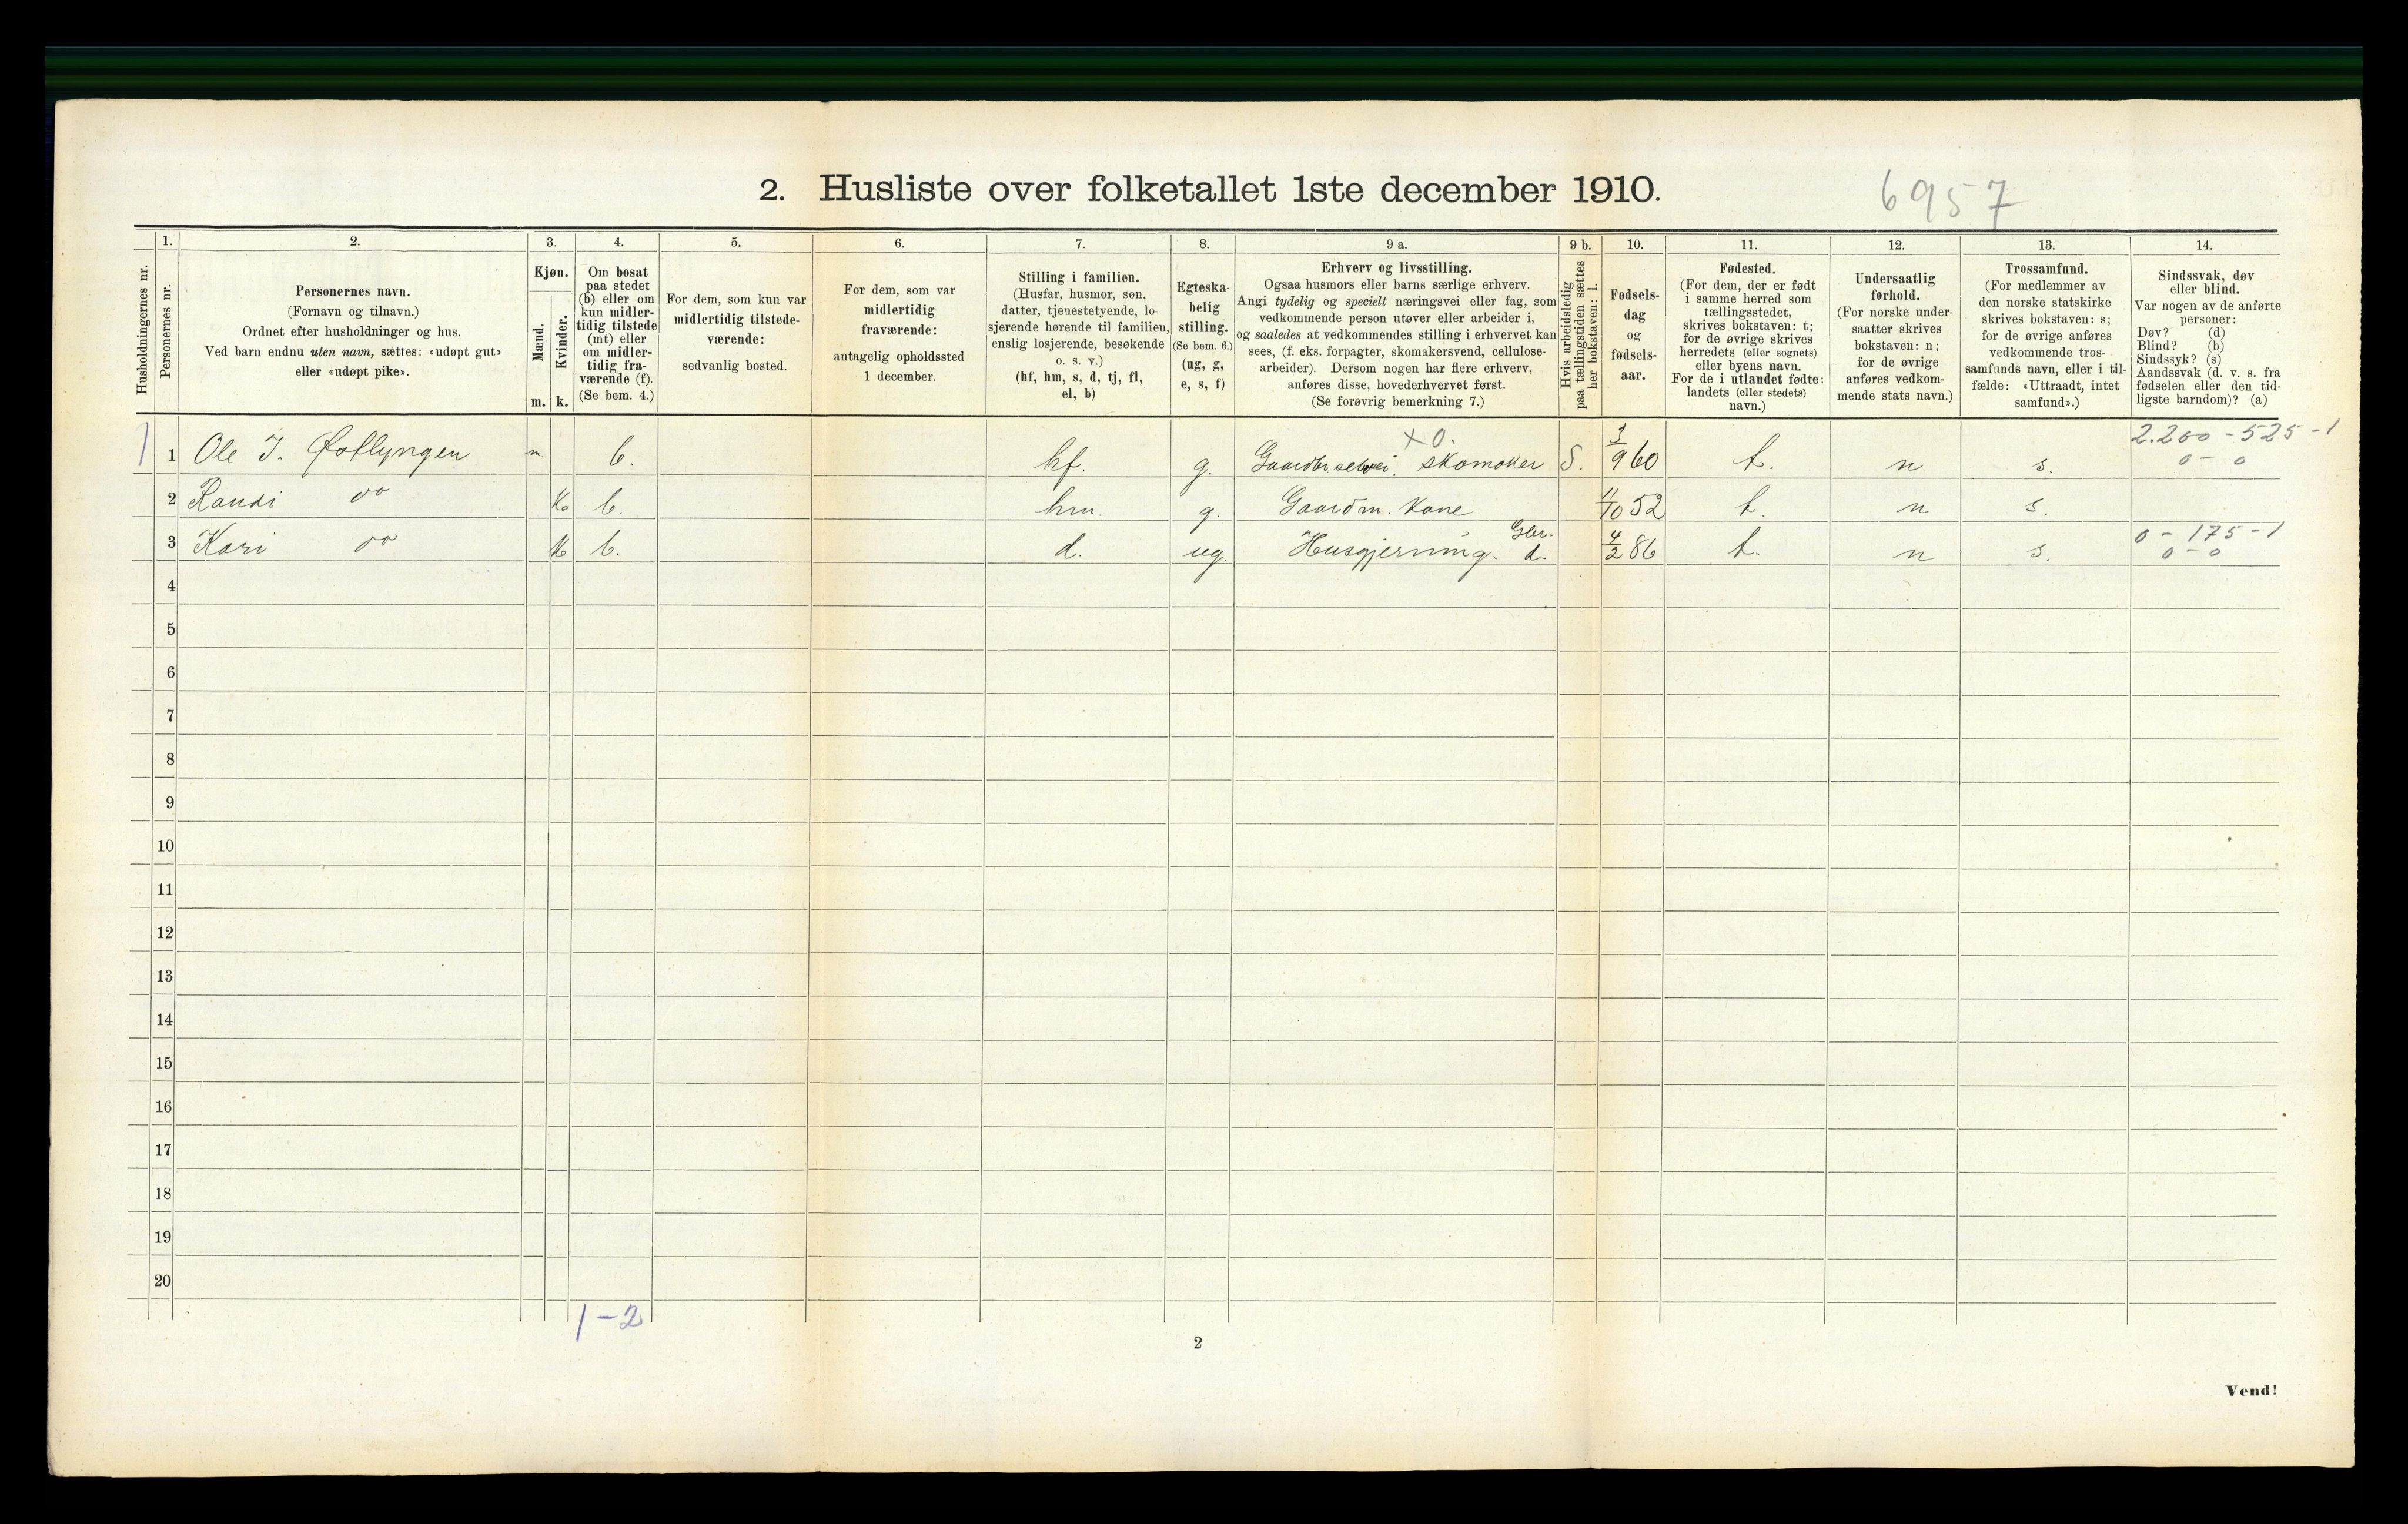 2. Husliste over folketallet 1ste december 1910.
6957
Husholdningernes nr.
1.
Personernes nr.
2.
Personernes navn.
(Fornavn og tilnavn.)
Ordnet efter husholdninger og hus.
Ved barn endnu uten navn, sættes: «udøpt gut»
eller «udøpt pike».
3.
Kjøn.
Mænd.
Kvinder.
m. k.
4.
Om bosat
paa stedet
(b) eller om
kun midler-
tidig tilstede
(mt) eller
om midler-
tidig fra-
værende (f).
(Se bem. 4.)
5.
For dem, som kun var
midlertidig tilstede-
værende:
sedvanlig bosted.
6.
For dem, som var
midlertidig
fraværende:
antagelig opholdssted
1 december.
7.
Stilling i familien.
(Husfar, husmor, søn,
datter, tjenestetyende, lo-
sjerende hørende til familien,
enslig losjerende, besøkende
o. s. v.)
(hf, hm, s, d, tj, fl,
el, b)
8.
Egteska-
belig
stilling.
(Se bem. 6.)
(ug, g,
e, s, f)
9 a.
Erhverv og livsstilling.
Ogsaa husmors eller barns særlige erhverv.
Angi tydelig og specielt næringsvei eller fag, som
vedkommende person utøver eller arbeider i,
og saaledes at vedkommendes stilling i erhvervet kan
sees, (f. eks. forpagter, skomakersvend, cellulose-
arbeider). Dersom nogen har flere erhverv,
anføres disse, hovederhvervet først.
(Se forøvrig bemerkning 7.)
9 b.
Hvis arbeidsledig
paa tællingstiden sættes
her bokstaven: l.
10.
Fødsels-
dag
og
fødsels-
aar.
11.
Fødested.
(For dem, der er født
i samme herred som
tællingsstedet,
skrives bokstaven: t;
for de øvrige skrives
herredets (eller sognets)
eller byens navn.
For de i utlandet fødte:
landets (eller stedets)
navn.)
12.
Undersaatlig
forhold.
(For norske under-
saatter skrives
bokstaven: n;
for de øvrige
anføres vedkom-
mende stats navn.)
13.
Trossamfund.
(For medlemmer av
den norske statskirke
skrives bokstaven: s;
for de øvrige anføres
vedkommende tros-
samfunds navn, eller i til-
fælde: «Uttraadt, intet
samfund».)
14.
Sindssvak, døv
eller blind.
Var nogen av de anførte
personer:
Døv? (d)
Blind? (b)
Sindssyk? (s)
Aandssvak (d. v. s. fra
fødselen eller den tid-
ligste barndom)? (a)
x O. 2.200 - 525 - 1
1 1 Ole J. Østlyngen m. b. hf. g. Gaardbr selvei. skomaker S. 3/9 60 t. n s. 0 - 0
2 Randi do k b. hm. g. Gaardm. kone 11/10 52 t. n s.
Gbr. 0 - 175 - 1
3 Kari do k b. d. ug. Husgjerning. d. 4/2 86 t. n s. 0 - 0
4
5
6
7
8
9
10
11
12
13
14
15
16
17
18
19
20
1 - 2
2
Vend!